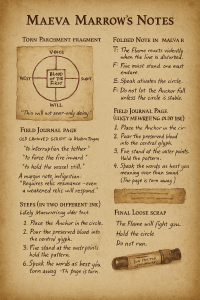 MAEVA MARROW'S NOTES
TORN PARCHMENT FRAGMENT
VOICE
BLOOD
OF THE
FIRST
WILL
"This will not sear-only delay."
FIELD JOURNAL PAGE
"to interruption the tether"
"to force the fire inward"
"to hold the vessel still."
A margin note indignation:
"Requires relic resonance - even
a weakened relic will respond."
STEPS (IN TWO DIFFERENT INK)
Likely Marrow using older text
1. Place the Anchor in the circle.
2. Pour the preserved blood
into the central glyph.
3. Five stand at the outer points
hold the pattern.
6. Speak the words as best you
Torn away - The page is torn.
FOLDED NOTE IN
The Flame reacts violently
when the line is distorted.
F: Five must stand; one must
endure.
E: Speak activates the circle.
F: Do not let the Anchor fall
unless the circle is stable.
FIELD JOURNAL PAGE
1. Place the Anchor in the
2. Pour the preserved blood
into the central glyph.
3. Five stand at the outer points.
Hold the pattern.
4. Speak the words as best you
meaning over
(The page is torn away.)
FINAL LOOSE SCRAP
The Flame will fight you.
Hold the circle
Do not run.